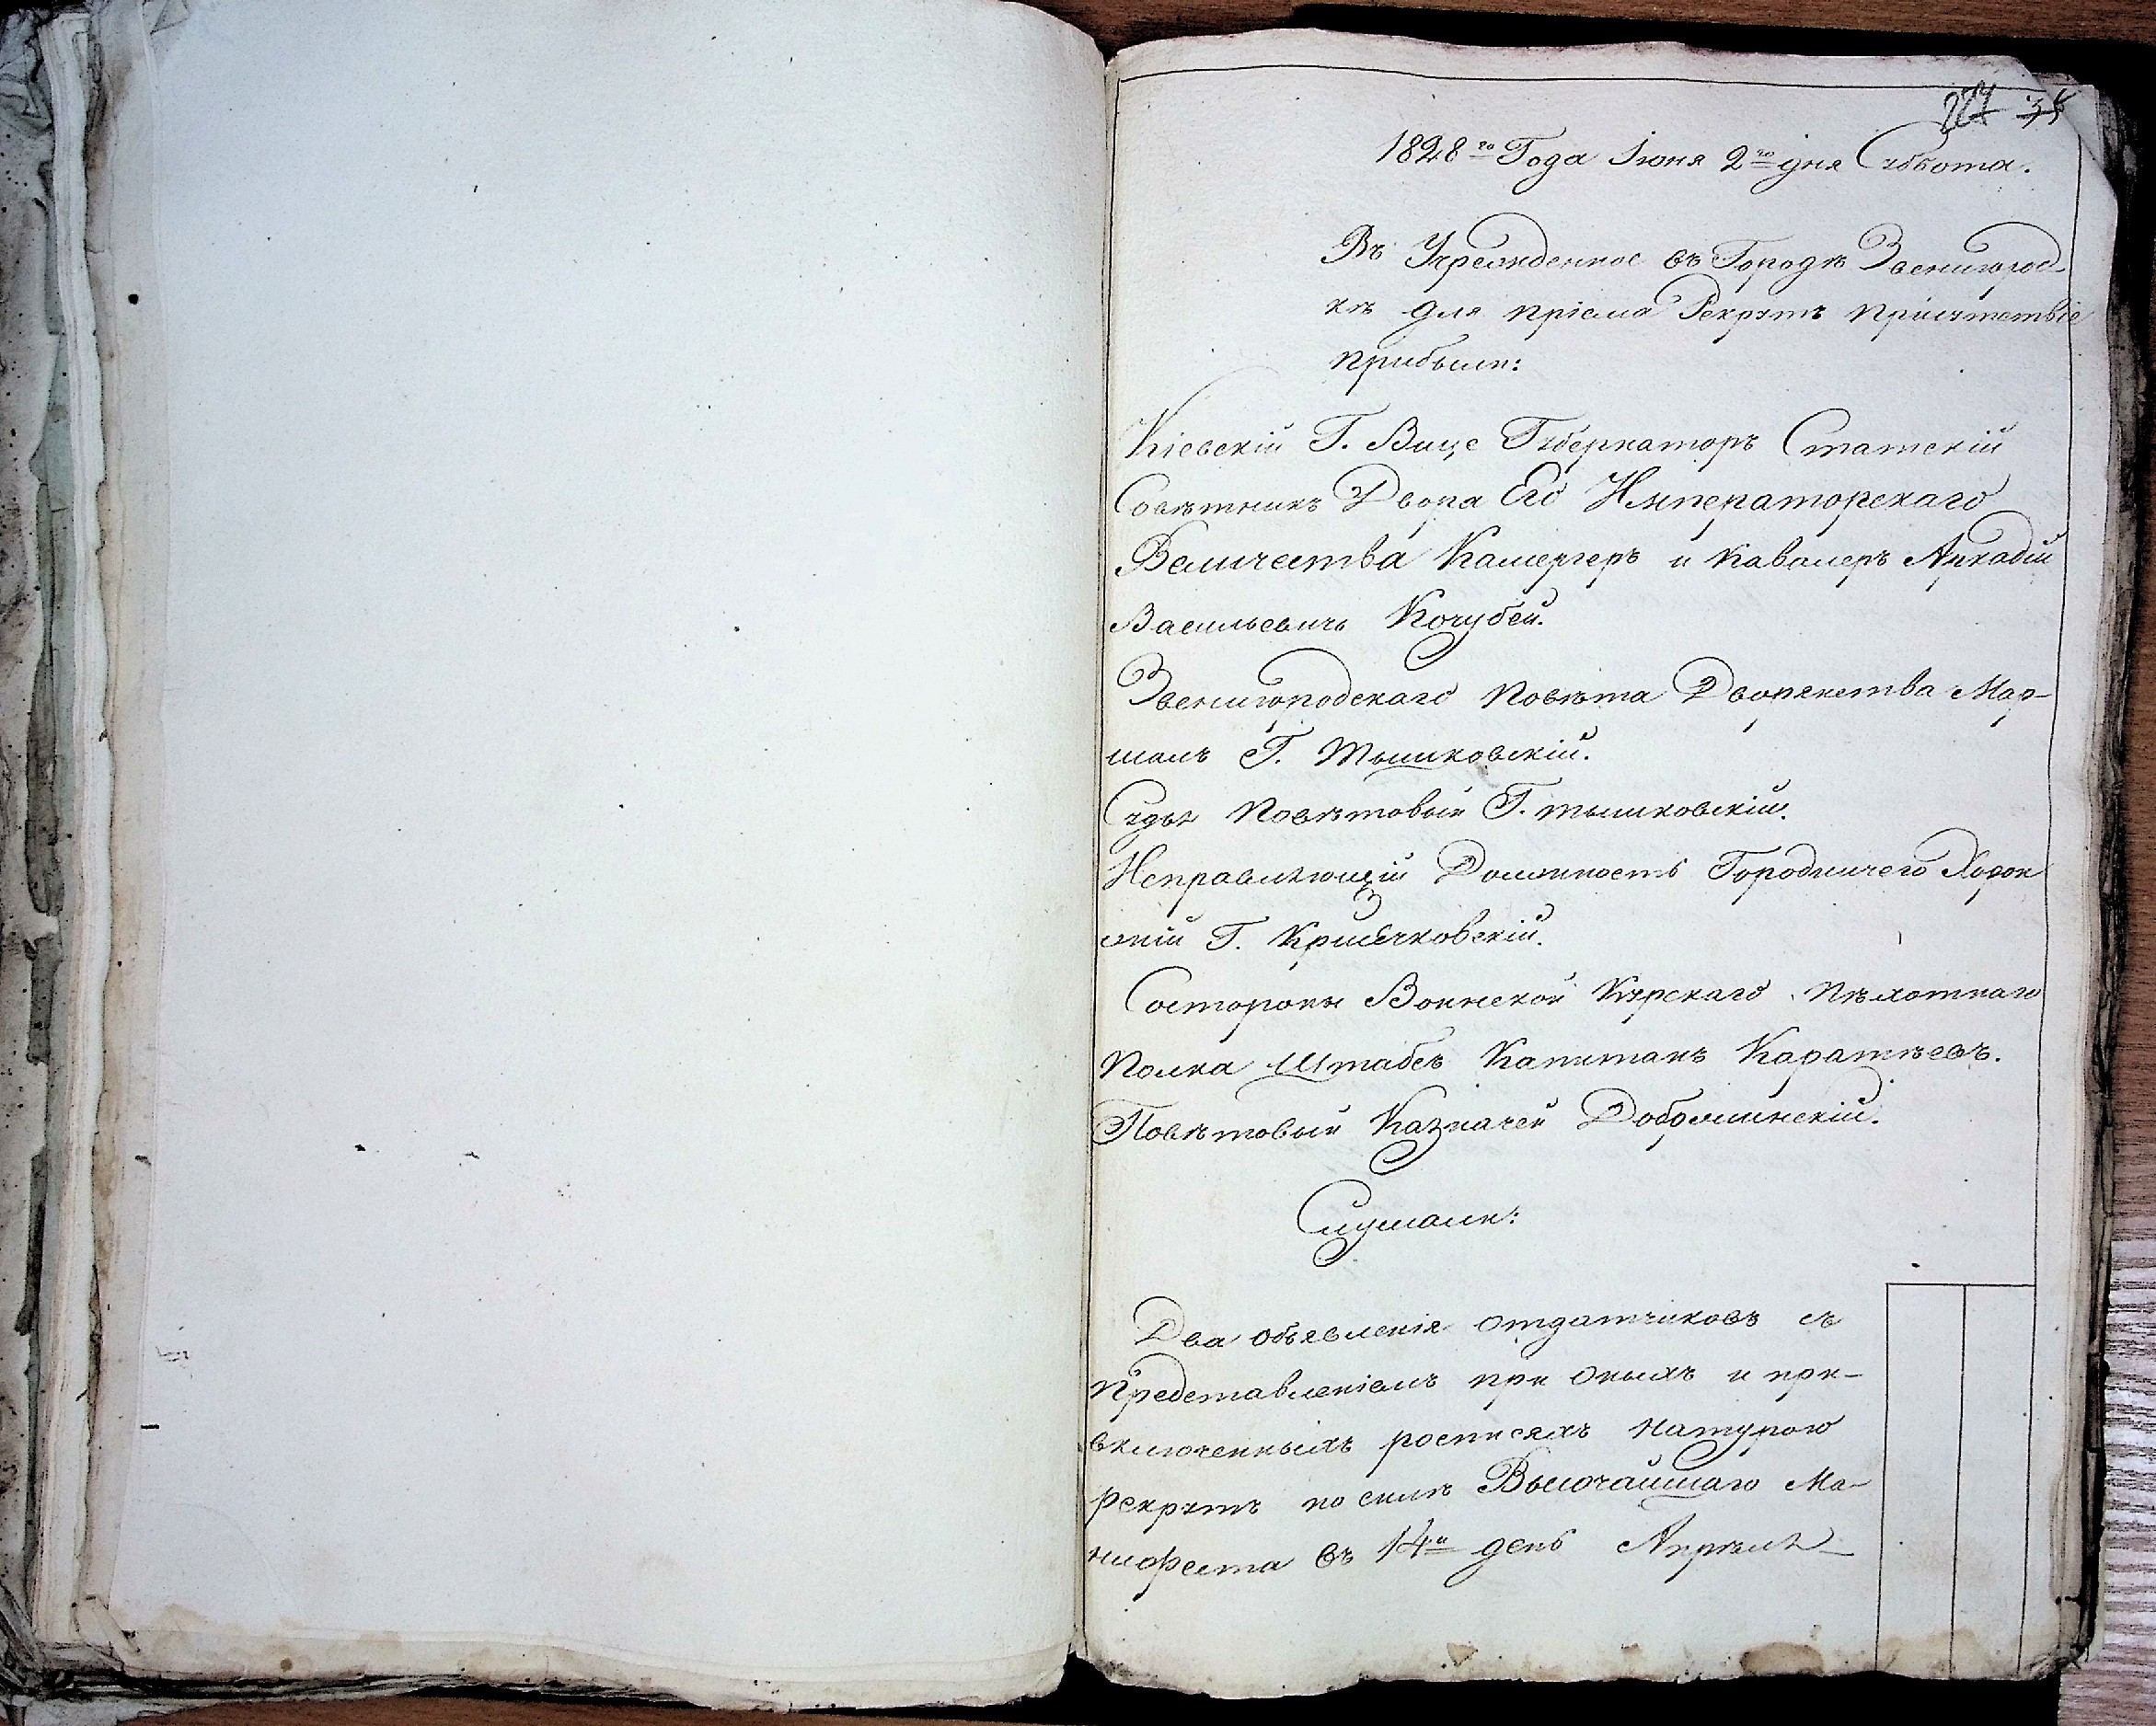 1828го Года Іюня 2го дня Субота.
Въ Учрежденное въ Городѣ Звенигород-
кѣ для пріема Рекрутъ присутствіе
прибыли:
Кіевскій Г. Вице Губернаторъ Статскій
Совѣтникъ Двора Его Императорскаго
Величества Камергеръ и Кавалеръ Аркадій
Васильевичь Кочубей.
Звенигородскаго повѣта Дворянства Мар-
шалъ Г. Тышковскій.
Судья Повѣтовый Г. тышковскій.
Исправляющій Должность Городничего Хорон
жій Г.
Состороны Воинской Курскаго Пѣхотнаго
Полка Штабсъ Капитанъ Каратѣевъ.
Повѣтовый Казначей
Слушали:
Два объявленія отдатчиковъ съ
Представленіемъ при оныхъ и при-
включенныхъ росписяхъ натурою
рекрутъ по силѣ Высочайшаго Ма-
нифеста въ 14й день Апрѣля